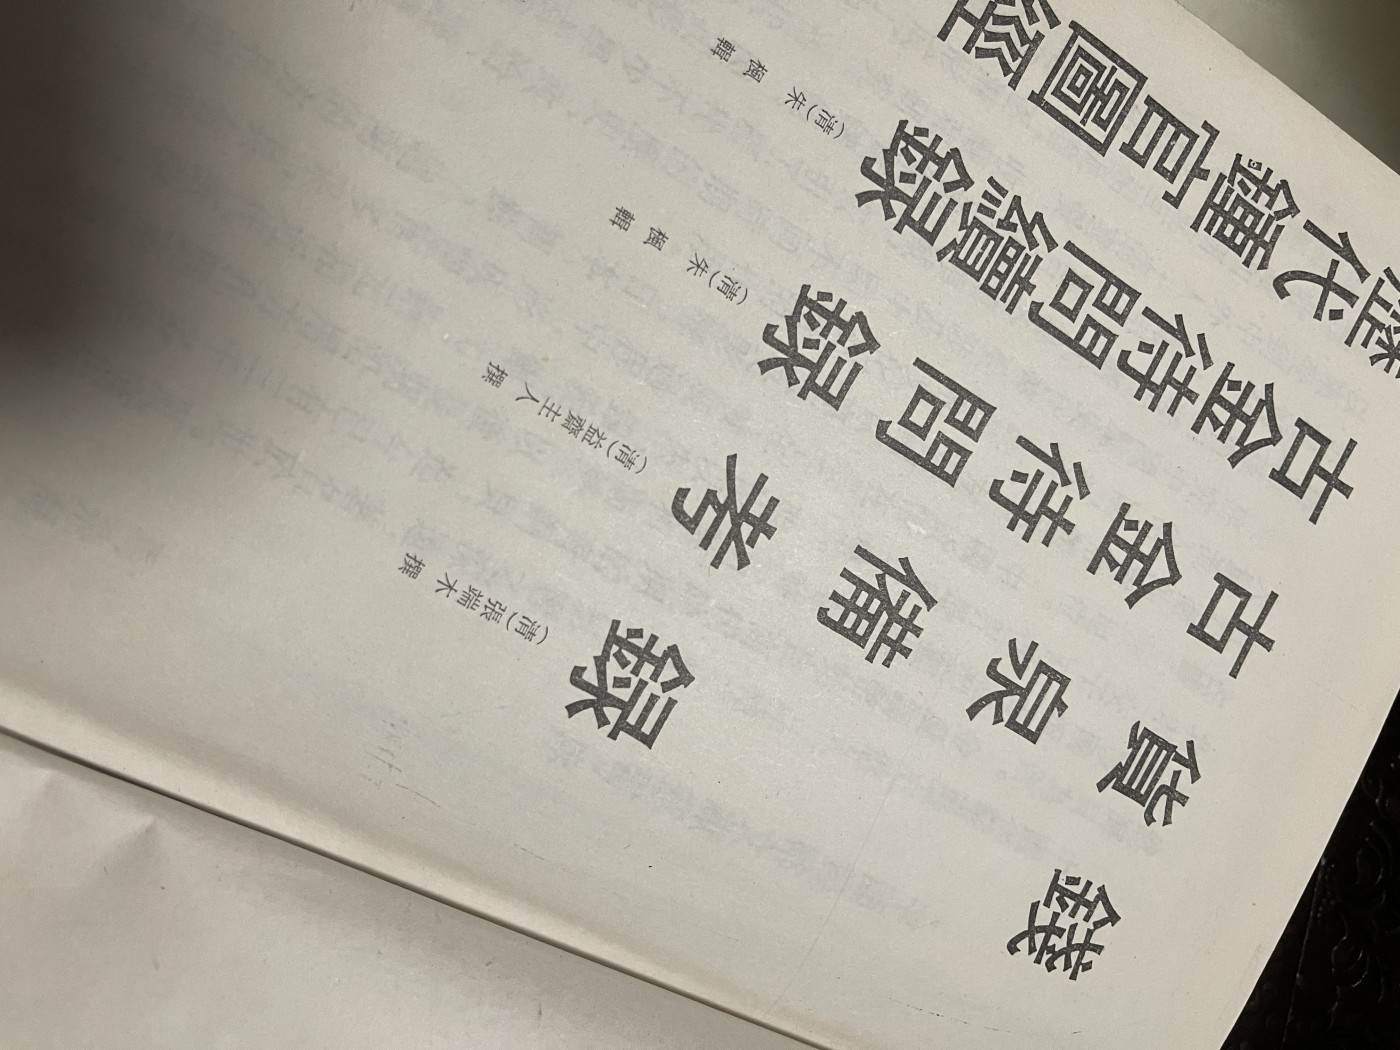 錢錄
(清)張端木 撰
貨泉備考
(清)益齋主人 撰
古金待問錄
(清)朱楓 輯
古金待問續錄
(清)朱楓 輯
歷代鍾官圖經